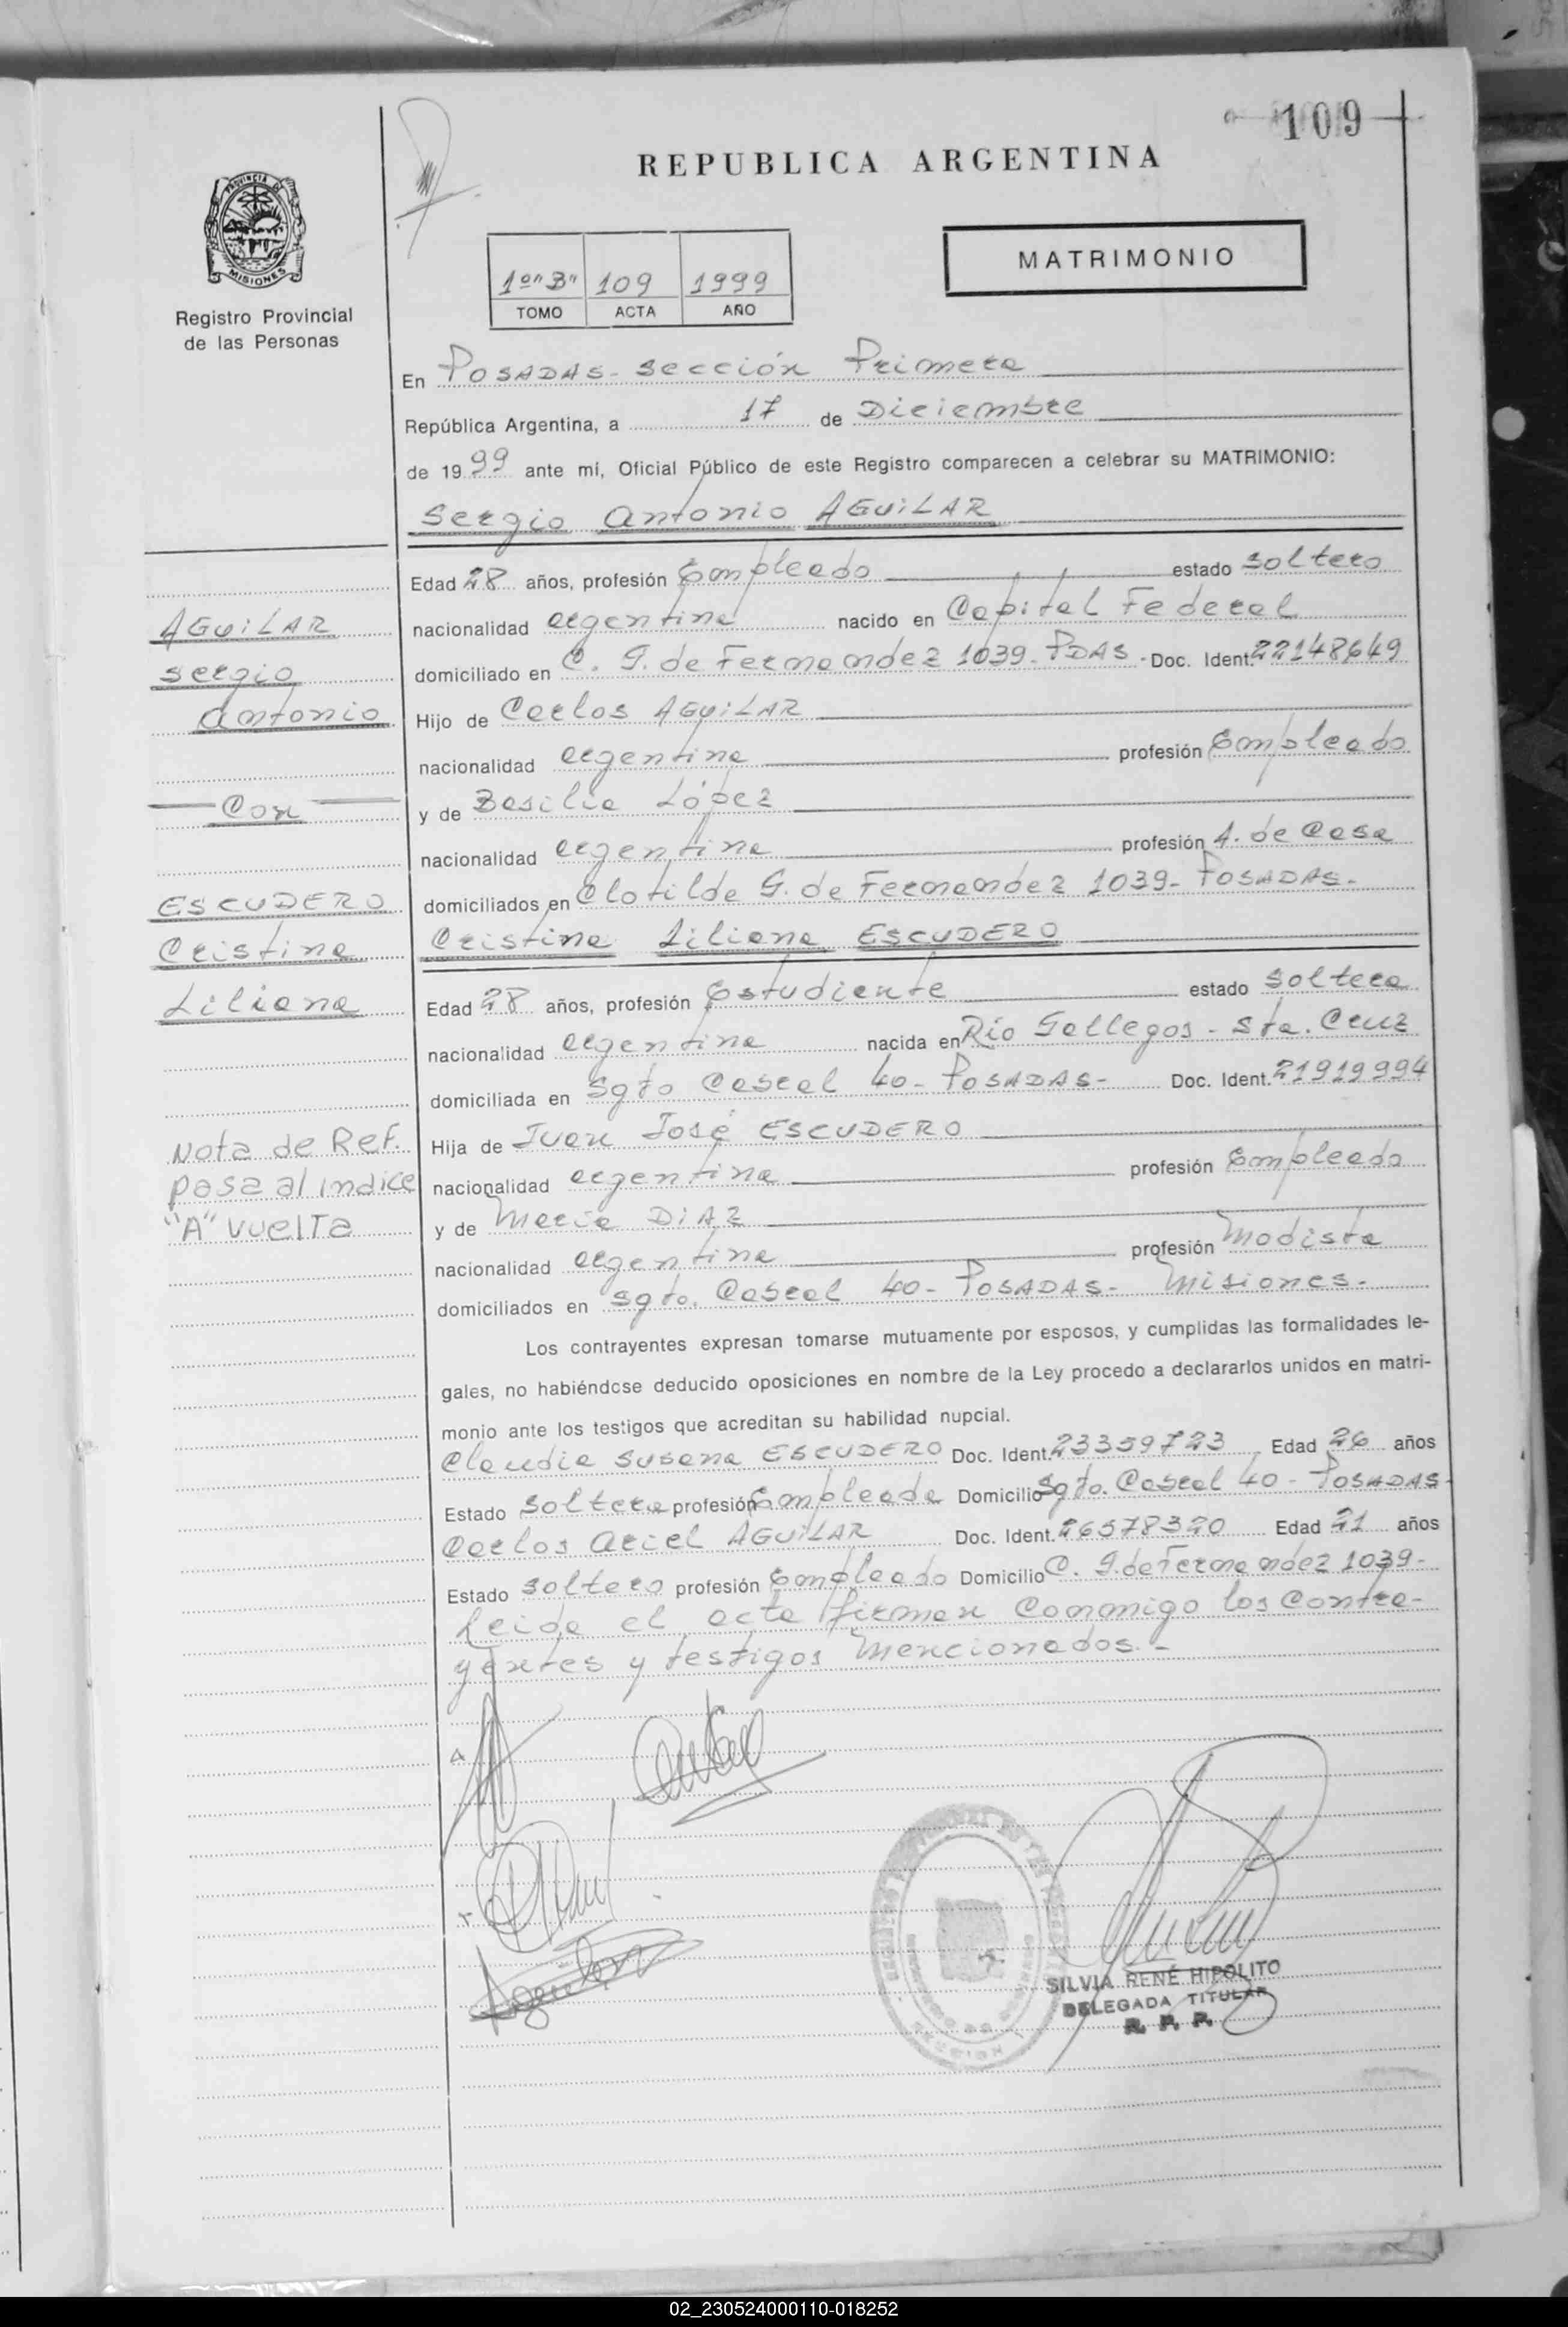 109
REPUBLICA ARGENTINA
PROVINCIA DE
MISIONES
Registro Provincial
de las Personas
1º "B" 109 1999
TOMO ACTA AÑO
MATRIMONIO
En POSADAS - Sección Primera
República Argentina, a 17 de Diciembre
de 1999 ante mí, Oficial Público de este Registro comparecen a celebrar su MATRIMONIO:
Sergio Antonio AGUILAR
Edad 28 años, profesión Empleado estado soltero
nacionalidad argentina nacido en Capital Federal
domiciliado en C. G. de Fernandez 1039 - PDAS - Doc. Ident. 22148649
Hijo de Carlos AGUILAR
nacionalidad argentina profesión Empleado
y de Basilia López
nacionalidad argentina profesión A. de Casa
domiciliados en Clotilde G. de Fernandez 1039 - POSADAS -
Cristina Liliana ESCUDERO
Edad 28 años, profesión Estudiante estado soltera
nacionalidad argentina nacida en Río Gallegos - Sta. Cruz
domiciliada en Sgto Cabral 40 - POSADAS - Doc. Ident. 21919994
Hija de Juan José ESCUDERO
nacionalidad argentina profesión Empleado
y de María DIAZ
nacionalidad argentina profesión Modista
domiciliados en Sgto. Cabral 40 - POSADAS - Misiones -
Los contrayentes expresan tomarse mutuamente por esposos, y cumplidas las formalidades le-
gales, no habiéndose deducido oposiciones en nombre de la Ley procedo a declararlos unidos en matri-
monio ante los testigos que acreditan su habilidad nupcial.
Claudia Susana ESCUDERO Doc. Ident. 23359723 Edad 26 años
Estado soltera profesión Empleada Domicilio Sgto. Cabral 40 - POSADAS -
Carlos Ariel AGUILAR Doc. Ident. 26578320 Edad 21 años
Estado soltero profesión Empleado Domicilio C. G. de Fernandez 1039 -
Leida el acta firman conmigo los contra-
yentes y testigos mencionados. -
AGUILAR
Sergio
Antonio
Con
ESCUDERO
Cristina
Liliana
Nota de Ref.
pasa al indice
"A" vuelta
Aguilar
SECCION
SILVIA RENÉ HIPOLITO
DELEGADA TITULAR
R. P. P.
02_230524000110-018252